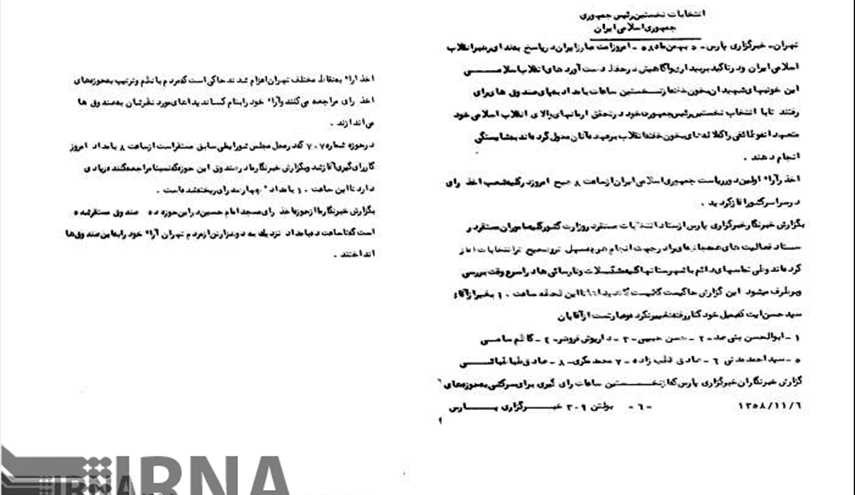 انتخابات نخستین رئیس جمهوری
جمهوری اسلامی ایران
تهران - خبرگزاری پارس - ۵ بهمن ماه ۵۸ - امروز امت مبارز ایران در پاسخ به ندای رهبر انقلاب
اسلامی ایران و در تاکید بر بیداری و آگاهیش در حفظ دست آوردهای انقلاب اسلامی
این خونبهای شهیدان بخون خفته از نخستین ساعات بامداد به پای صندوق های رای
رفتند تا با انتخاب نخستین رئیس جمهور خود در تحقق آرمانهای والای انقلاب اسلامی خود
متعهد انه وظائفی را که لاله های بخون خفته انقلاب بر عهده آنان محول کرده اند به شایستگی
انجام دهند .
اخذ رآراء اولین دور ریاست جمهوری اسلامی ایران از ساعت ۸ صبح امروز در کلیه شعب اخذ رای
در سراسر کشور آغاز گردید .
بگزارش خبرنگار خبرگزاری پارس از ستاد انتخابات مستقر در وزارت کشور کلیه ماموران مستقر در
ستاد فعالیت های همه جانبه ای را در جهت انجام هر چه سریع تر و صحیح تر انتخابات آغاز
کرده اند و طی تماسهای دائم با شهرستانها کلیه مشکلات و نارسائی ها در اسرع وقت بررسی
و برطرف میشود این گزارش حاکیست که لیست کاندیداها تا این لحظه ساعت ۱۰ بغیر از آقای
سید حسن آیت که بنفع خود کنار رفته تغییر نکرده و عبارتست از آقایان
۱ - ابوالحسن بنی صدر - ۲ - حسن حبیبی - ۳ - داریوش فروهر - ۴ - کاظم سامی
۵ - سید احمد مدنی ۶ - صادق قطب زاده - ۷ محمد مکری - ۸ - صادق طباطبائی
گزارش خبرنگاران خبرگزاری پارس که از نخستین ساعات رای گیری برای سرکشی به حوزه های
۱۳۵۸/۱۱/۶ - ۶ - بولتن ۳۰۹ خبرگزاری پارس
اخذ آراء به نقاط مختلف تهران اعزام شدند حاکی است که مردم با نظم و ترتیب به حوزه های
اخذ رای مراجعه می کنند و آراء خود را بنام کساندیدای مورد نظرشان به صندوق ها
می اندازند .
در حوزه شماره ۷۰۷ که در محل مجلس شورای ملی سابق مستقر است از ساعت ۸ بامداد امروز
کار رای گیری آغاز شد و بگزارش خبرنگار ما در صندوق این حوزه که نسبتا مراجعه کننده زیادی
دارد تا این ساعت ۱۰ بامداد چهار صد رای ریخته شده است .
بگزارش خبرنگار ما از حوزه اخذ رای مسجد امام حسین در این حوزه ده صندوق مستقر شده
است که تا ساعت ده بامداد نزدیک به دو هزار تن از مردم تهران آراء خود را به این صندوق ها
انداختند .
IRNA